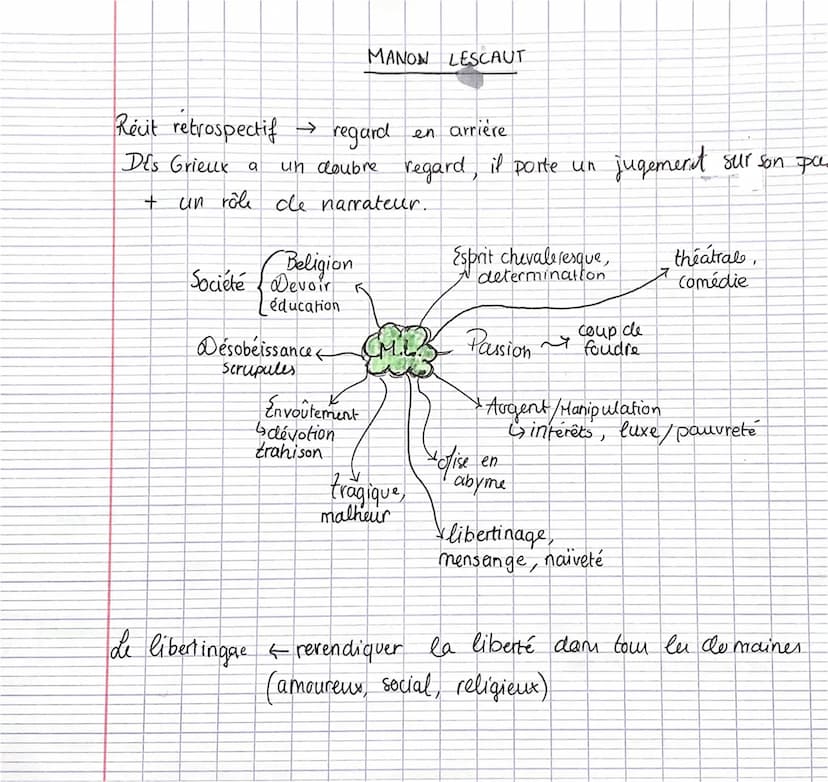 MANON LESCAUT
Récit rétrospectif → regard en arrière
Des Grieux a un doubre regard, il porte un jugement sur son
+ un rôle de narrateur.
Société { Religion
Devoir
éducation
Esprit chevaleresque,
determination
théâtrale,
comédie
M.L.
Passion → coup de
foudre
Désobéissance
scrupules
Envoûtement
↳ dévotion
trahison
Argent/Manipulation
↳ intérêts, luxe/pauvreté
Mise en
abyme
tragique,
malheur
libertinage,
mensange, naïveté
Le libertingae ← revendiquer la liberté dans tous les domaines
(amoureux, social, religieux)